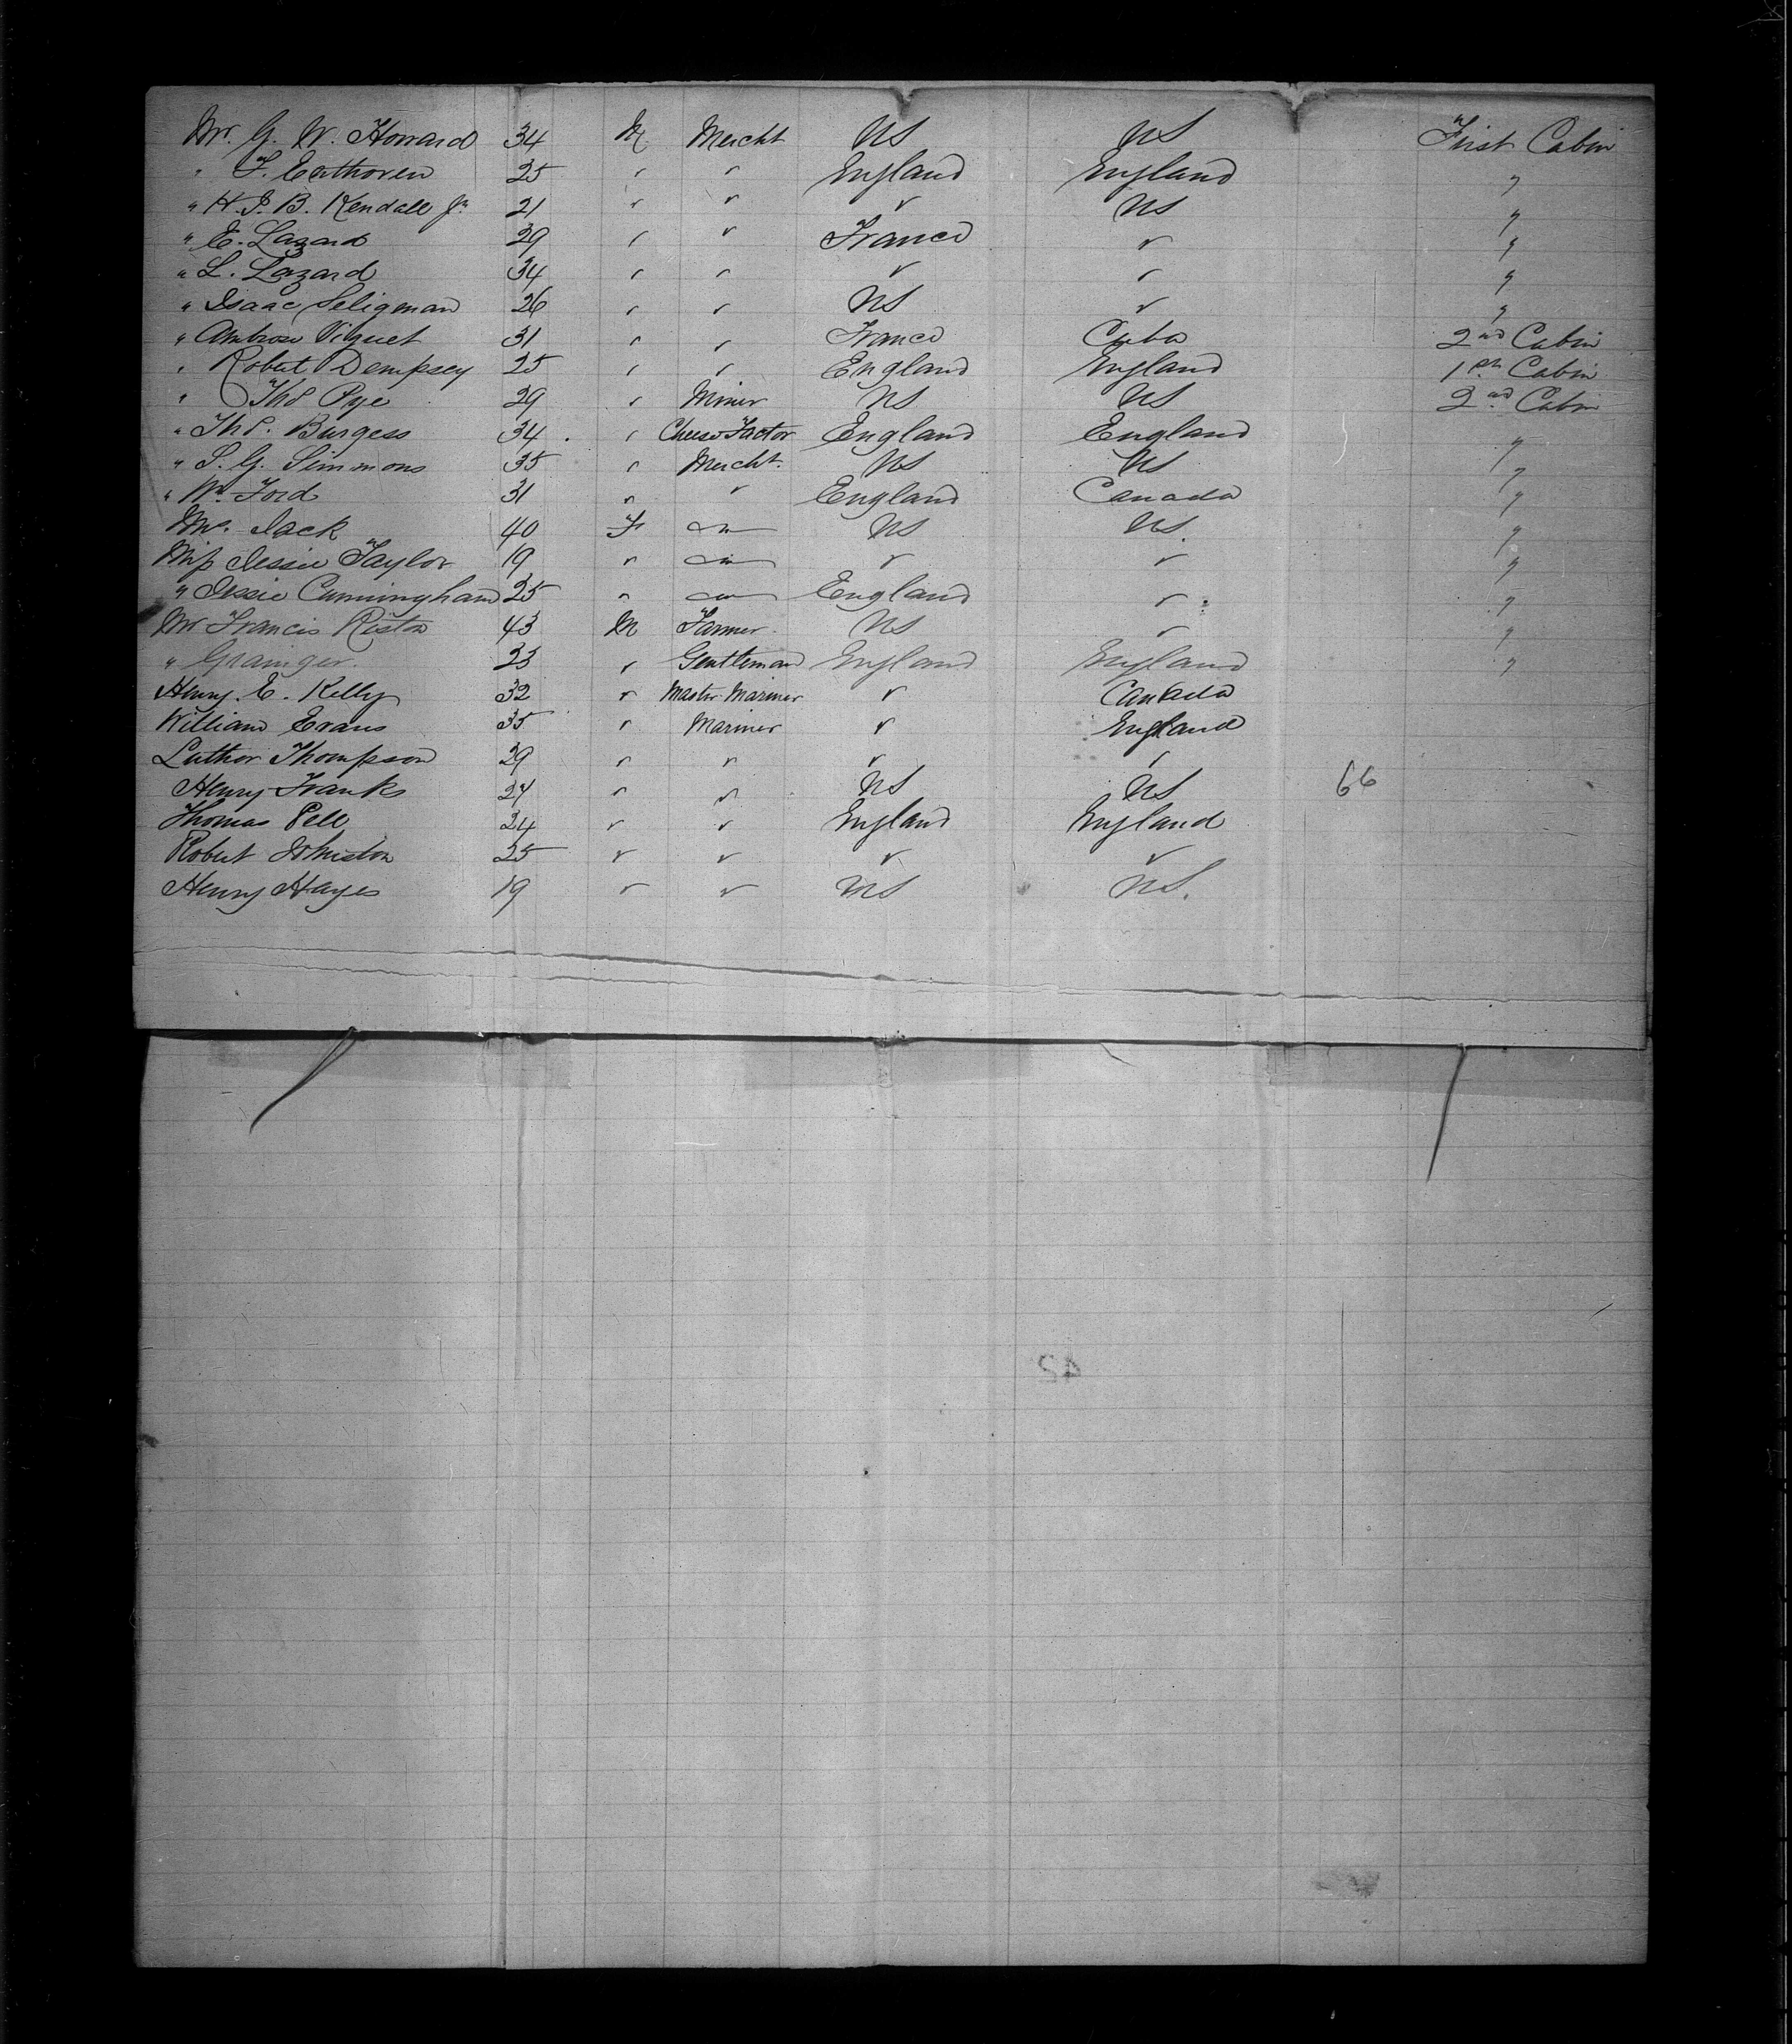 Mr. G. W. Howard 34 M Mercht US US First Cabin
" F. Enthoven 25 " " England England "
" H. J. B. Kendall Jr 21 " " " US "
" E. Lazard 29 " " France " "
" L. Lazard 34 " " " " "
" Isaac Seligman 26 " " US " "
" Ambrose Viguet 31 " " France Cuba 2nd Cabin
" Robert Dempsey 25 " " England England 1st Cabin
" Thos Pye 29 " Miner US US 2nd Cabin
" Thos. Burgess 34 " Cheese Factor England England "
" S. G. Simmons 35 " Mercht. US US "
" Wm Ford 31 " " England Canada "
Mrs. Jack 40 F US US. "
Miss Jessie Taylor 19 " " " "
" Jessie Cunningham 25 " England " "
Mr Francis Riston 43 M Farmer US " "
" Grainger. 23 " Gentleman England England "
Henry. E. Kelly 32 " Master Mariner " Canada
William Evans 35 " Mariner " England
Luther Thompson 29 " " " "
Henry Franks 24 " " US US 66
Thomas Pell 24 " " England England
Robert Johnston 25 " " " "
Henry Hayes 19 " " US US.
42